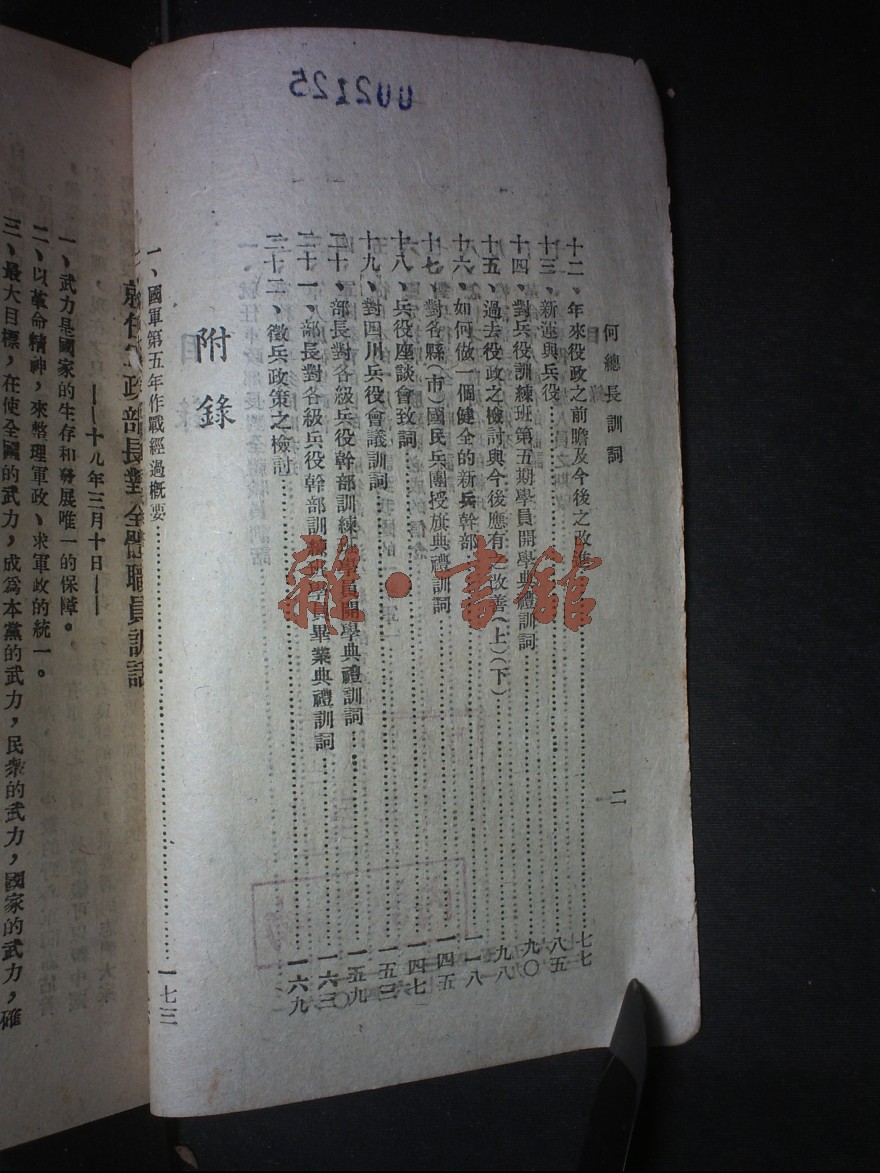 002125
何總長訓詞
二
十二、年來役政之前瞻及今後之改進……七七
十三、新運與兵役……八五
十四、對兵役訓練班第五期學員開學典禮訓詞……九〇
十五、過去役政之檢討與今後應有之改善(上)(下)……九八
十六、如何做一個健全的新兵幹部……一一八
十七、對各縣(市)國民兵團授旗典禮訓詞……一四五
十八、兵役座談會致詞……一四七
十九、對四川兵役會議訓詞……一五三
二十、部長對各級兵役幹部訓練班學員開學典禮訓詞……一五九
二十一、部長對各級兵役幹部訓練班學員畢業典禮訓詞……一六三
二十二、徵兵政策之檢討……一六九
附錄
一、國軍第五年作戰經過概要……一七三
政部長對全體職員訓話
——十八年三月十日——
一、武力是國家的生存和發展唯一的保障。
二、以革命精神,來整理軍政、求軍政的統一。
三、最大目標,在使全國的武力,成爲本黨的武力,民衆的武力,國家的武力,確
雜·書館